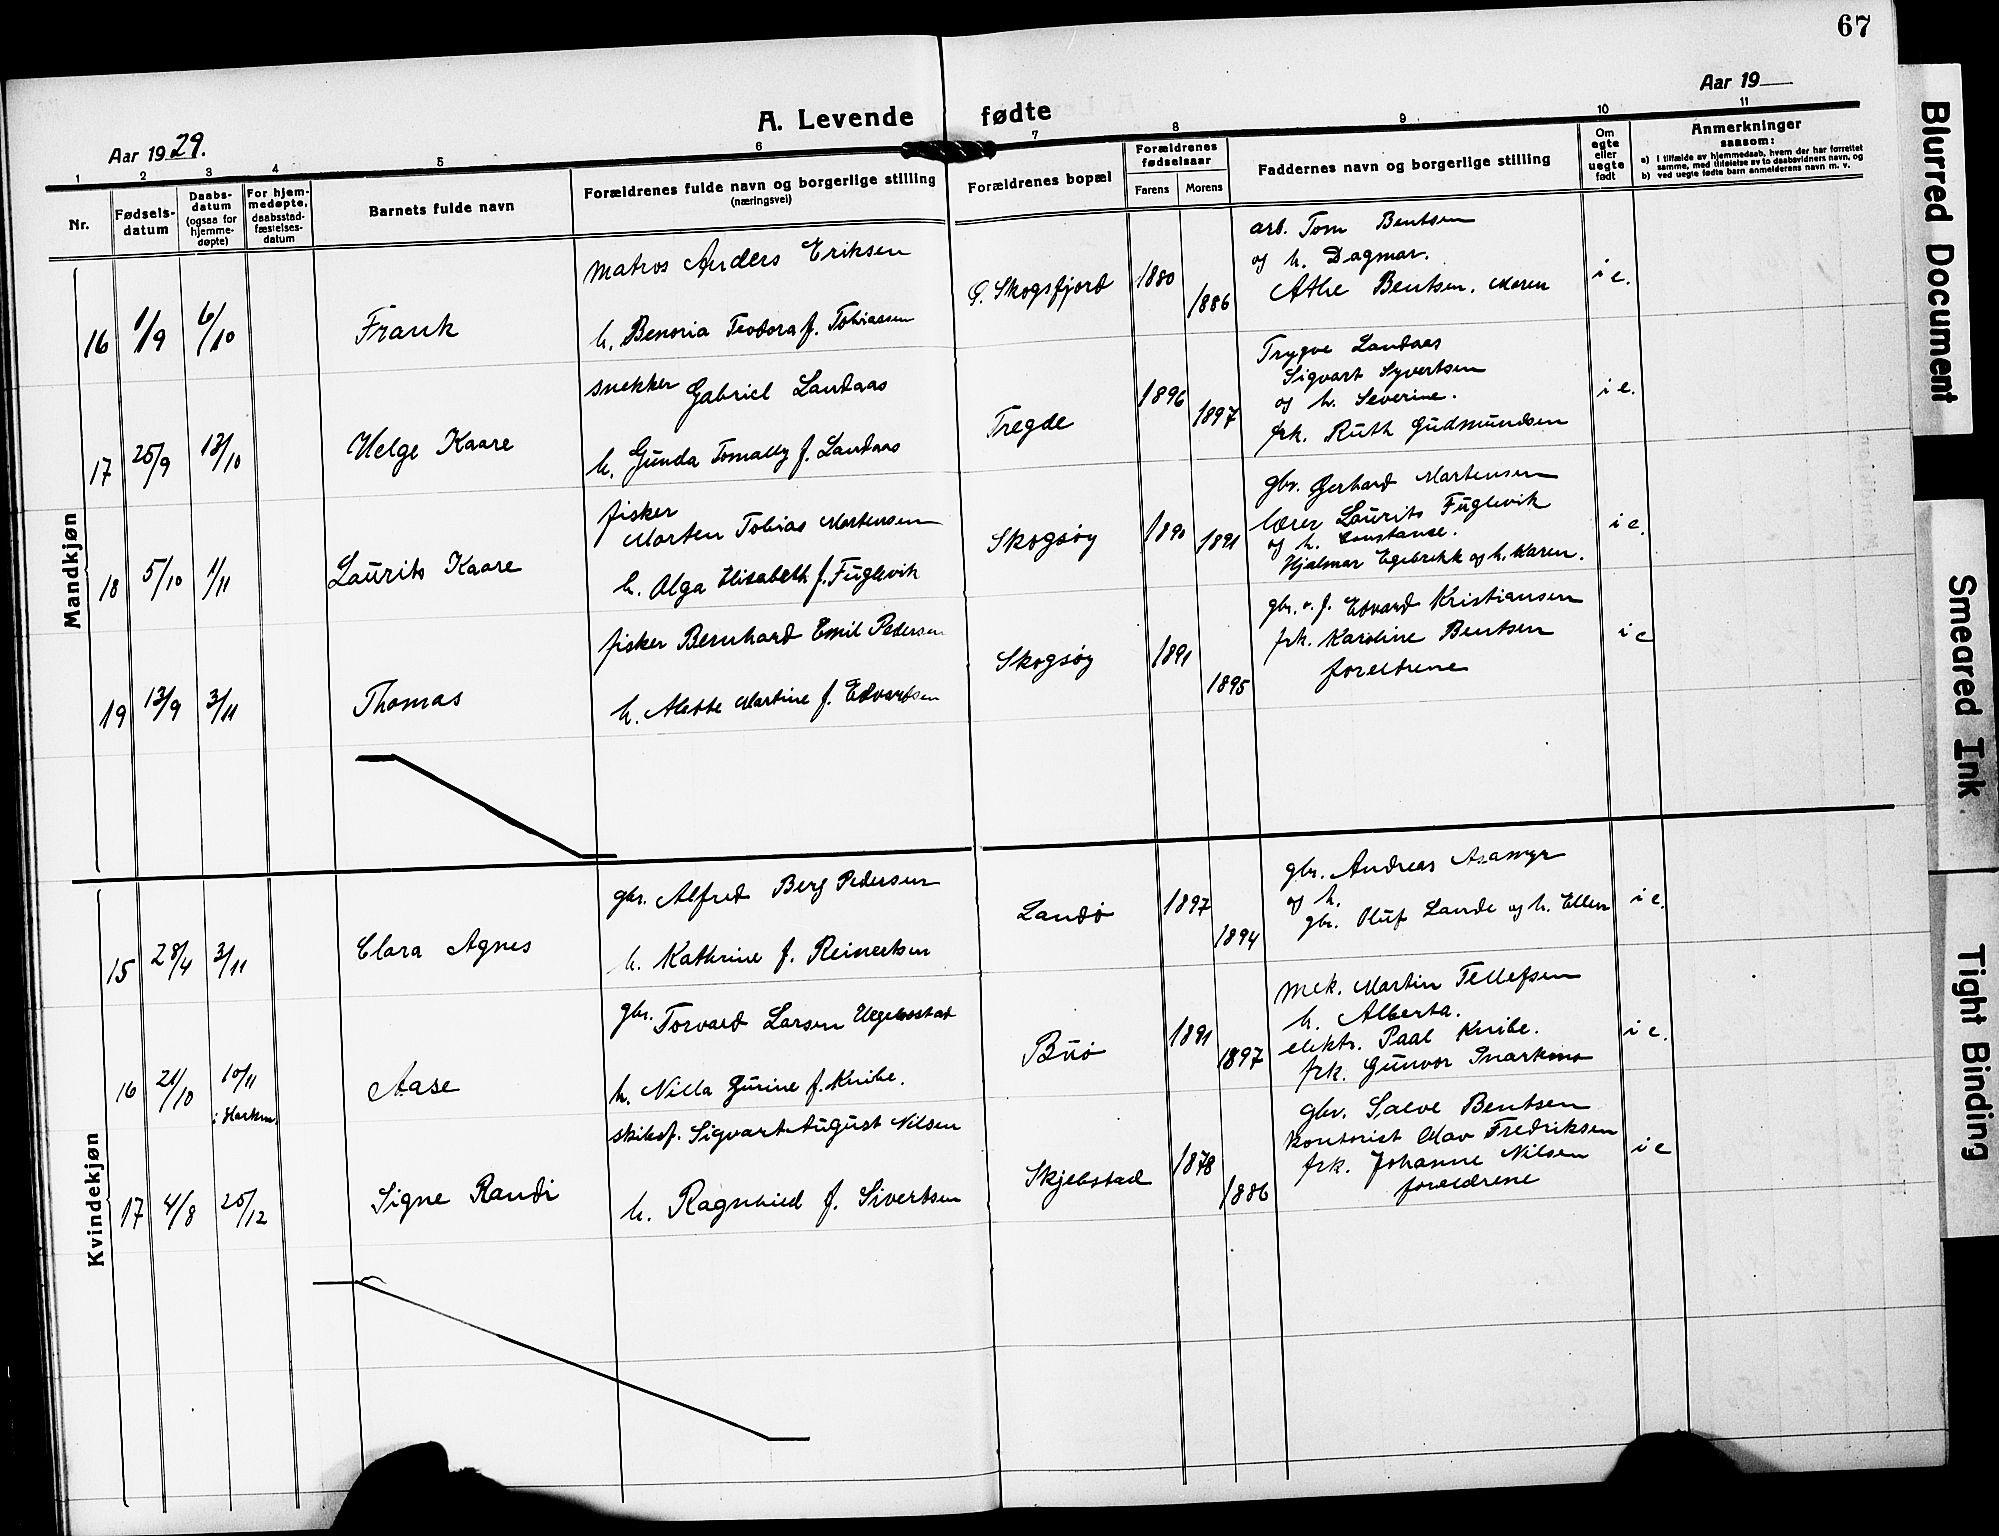 67
Aar 1929.
A. Levende fødte
Aar 19
1 2 3 4 5 6 7 8 9 10 11
Nr.
Fødsels-
datum
Daabs-
datum
(ogsaa for
hjemme-
døpte)
For hjem-
medøpte,
daabsstad-
fæstelses-
datum
Barnets fulde navn
Forældrenes fulde navn og borgerlige stilling
(næringsvei)
Forældrenes bopæl
Forældrenes
fødselsaar
Farens Morens
Faddernes navn og borgerlige stilling
Om
egte
eller
uegte
født
Anmerkninger
saasom:
a) I tilfælde av hjemmedaab, hvem der har forrettet
samme, med tilføielse av to daabsvidners navn, og
b) ved uegte fødte barn anmelderens navn m. v.
Mandkjøn
16 1/9 6/10 Frank
matros Anders Eriksen
h. Benoria Teodora f. Tobiassen
Ø. Skogsfjord 1880 1886
arb. Tom Bentsen
og h. Dagmar.
Athe Bentsen. Moren
i e.
17 25/9 13/10 Helge Kaare
snekker Gabriel Landaas
h. Gunda Tomally f. Landaas
Tregde 1896 1897
Trygve Landaas
Sigvart Syvertsen
og h. Severine.
frk. Ruth Gudmundsen
i e.
18 5/10 1/11 Laurits Kaare
fisker
Morten Tobias Mortensen
h. Olga Elisabeth f. Fuglevik
Skogsøy 1890 1891
gbr. Gerhard Martensen
lærer Laurits Fuglevik
og h. Constanse.
Hjalmar Egebrekk og h. Karen.
i e.
19 13/9 3/11 Thomas
fisker Bernhard Emil Pedersen
h. Alette Martine f. Edvardsen
Skogsøy 1891 1895
gbr. o. f. Edvard Kristiansen
frk. Karoline Bentsen
foreldrene
i e
Kvindekjøn
15 28/4 3/11 Clara Agnes
gbr. Alfred Berg Pedersen
h. Kathrine f. Reinertsen
Landø 1897 1894
gbr. Andreas Asamyr
og h.
gbr. Oluf Lande og h. Ellen
i e.
16 21/10 10/11
i Harkm. Aase
gbr. Torvard Larsen Uegelsstad
h. Nilla Gurine f. Knibe.
Buø 1891 1897
mek. Martin Tellefsen
h. Alberta.
elektr. Paal Knibe.
frk. Gunvor Snarkmo
i e.
17 4/8 25/12 Signe Randi
skibsf. Sigvart August Nilsen
h. Ragnhild f. Sivertsen
Skjebstad 1878 1886
gbr. Salve Bentsen
kontorist Olav Fredriksen
frk. Johanne Nilsen
foreldrene
i e
Blurred Document
Smeared Ink
Tight Binding